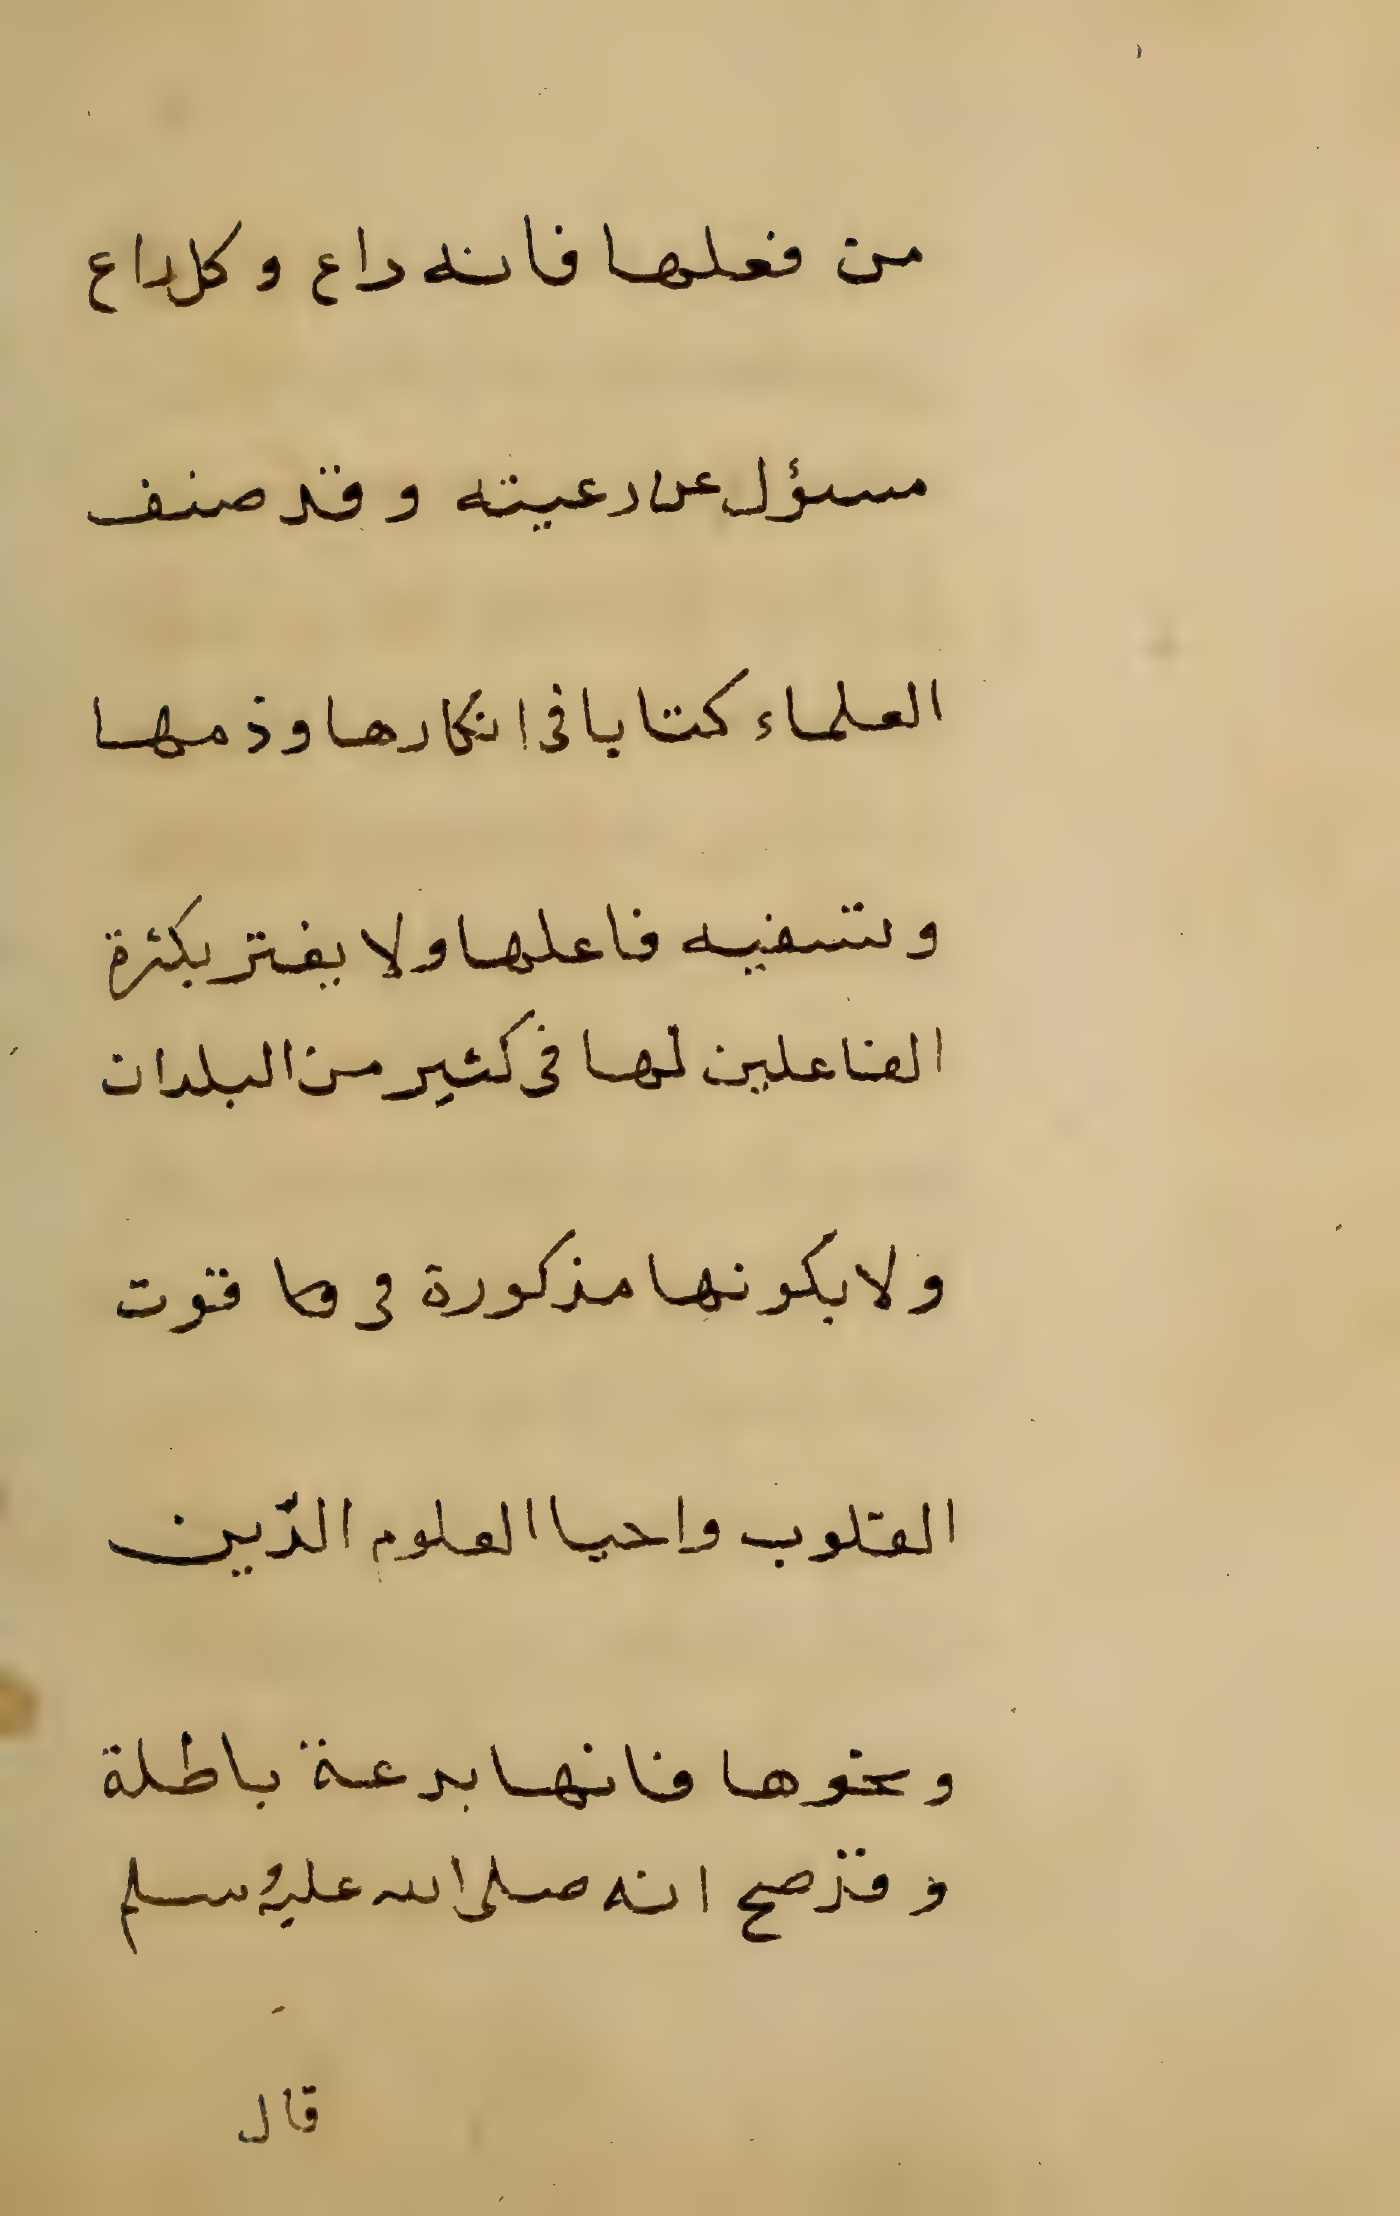 من فعلها فانه داع و كل داع
مسؤل عن رعيته و قد صنف
العلماء كتابا فى انكارها وذمها
و تسفيه فاعلها ولا يغتر بكثرة
الفاعلين لها فى كثير من البلدان
ولا بكونها مذكورة فى قوت
القلوب واحيا العلوم الدّين
و نحوها فانها بدعة باطلة
و قد صح انه صلى الله عليه وسلم
قال